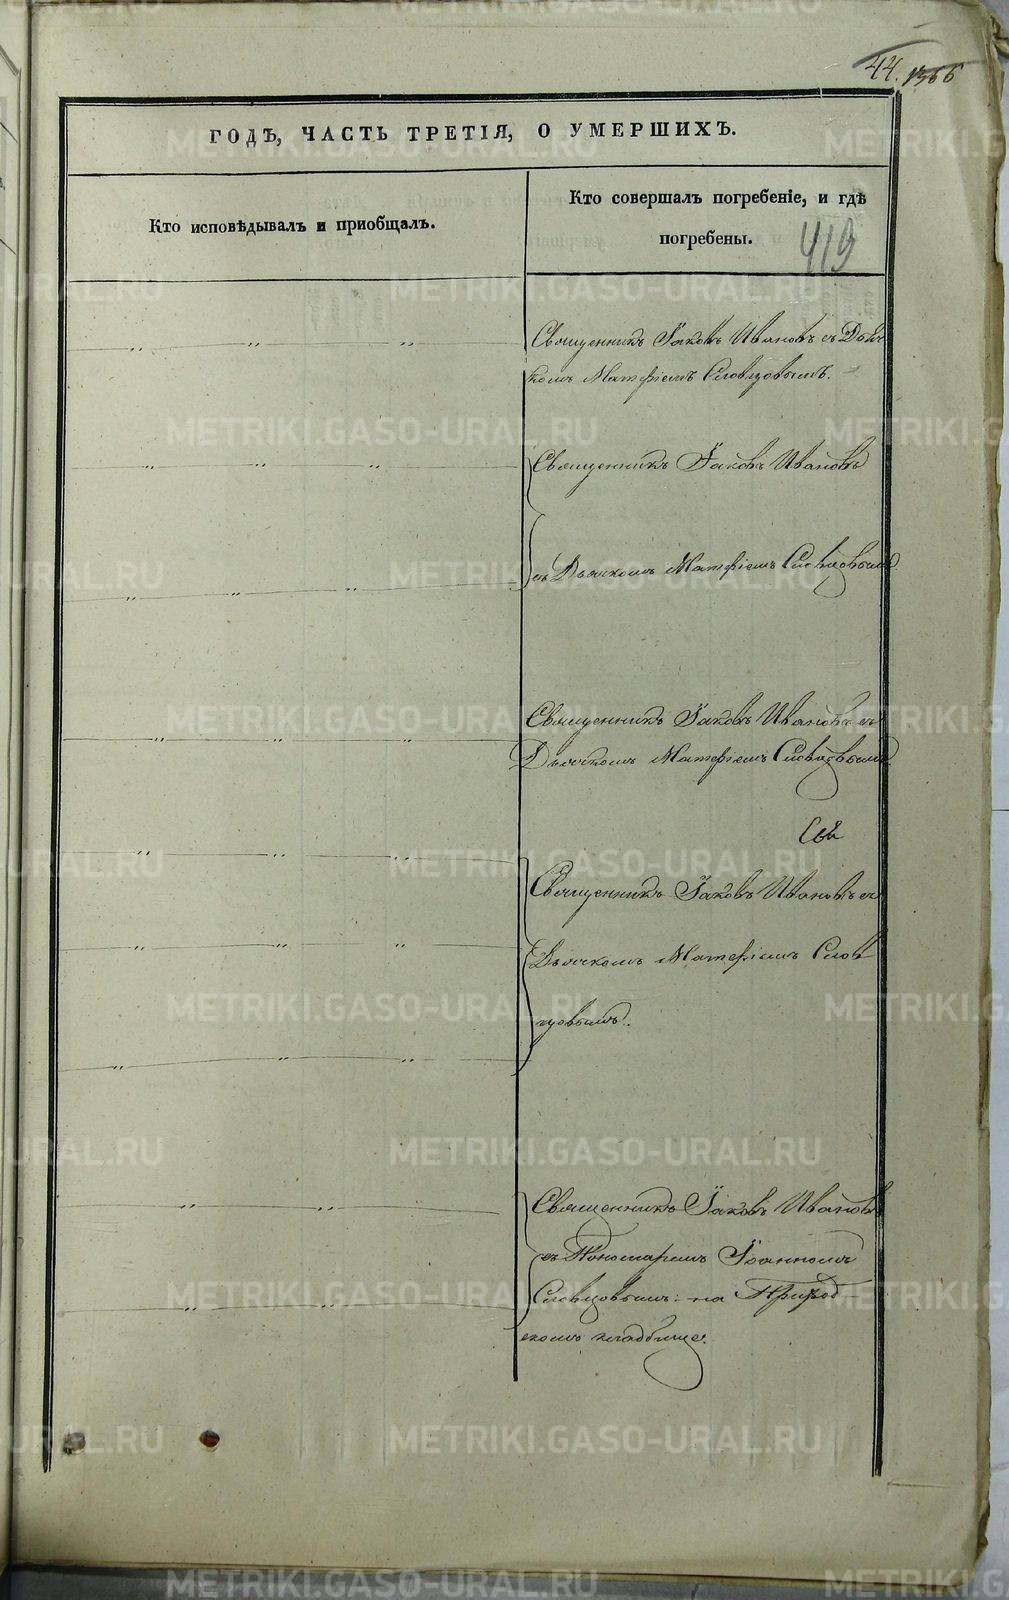 44. 1366
ГОДѢ, ЧАСТЬ ТРЕТІЯ, О УМЕРШИХЪ.
Кто исповѣдывалъ и приобщалъ.
Кто совершалъ погребеніе, и гдѣ
погребены.
419
Священникъ Іаковъ Ивановъ съ Дьяч
комъ Матфіемъ Словцовымъ.
Священникъ Іаковъ Ивановъ
съ Дьячкомъ Матфіемъ Словцовымъ.
Священникъ Іаковъ Ивановъ съ
Дьячкомъ Матфіемъ Словцовымъ.
Священникъ Іаковъ Ивановъ съ
Дьячкомъ Матфіемъ Слов
цовымъ.
Священникъ Іаковъ Ивановъ
съ Пономаремъ Іоанномъ
Словцовымъ: на Приход
скомъ кладбище.
METRIKI.GASO-URAL.RU